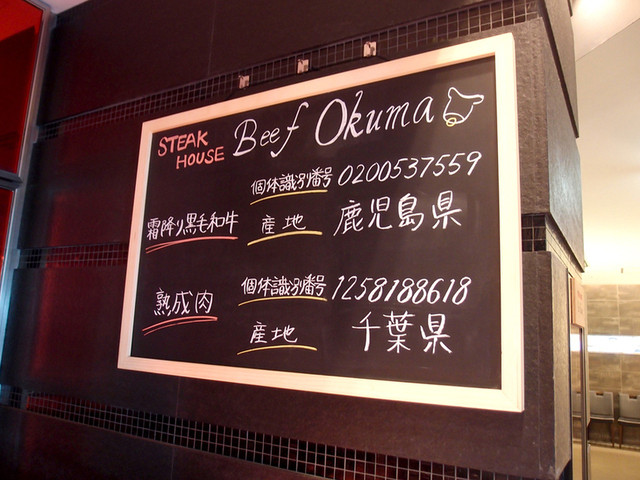 STEAK HOUSE Beef Okuma
個体識別番号 0200537559
霜降り黒毛和牛 産地 鹿児島県
個体識別番号 1258188618
熟成肉
産地 千葉県